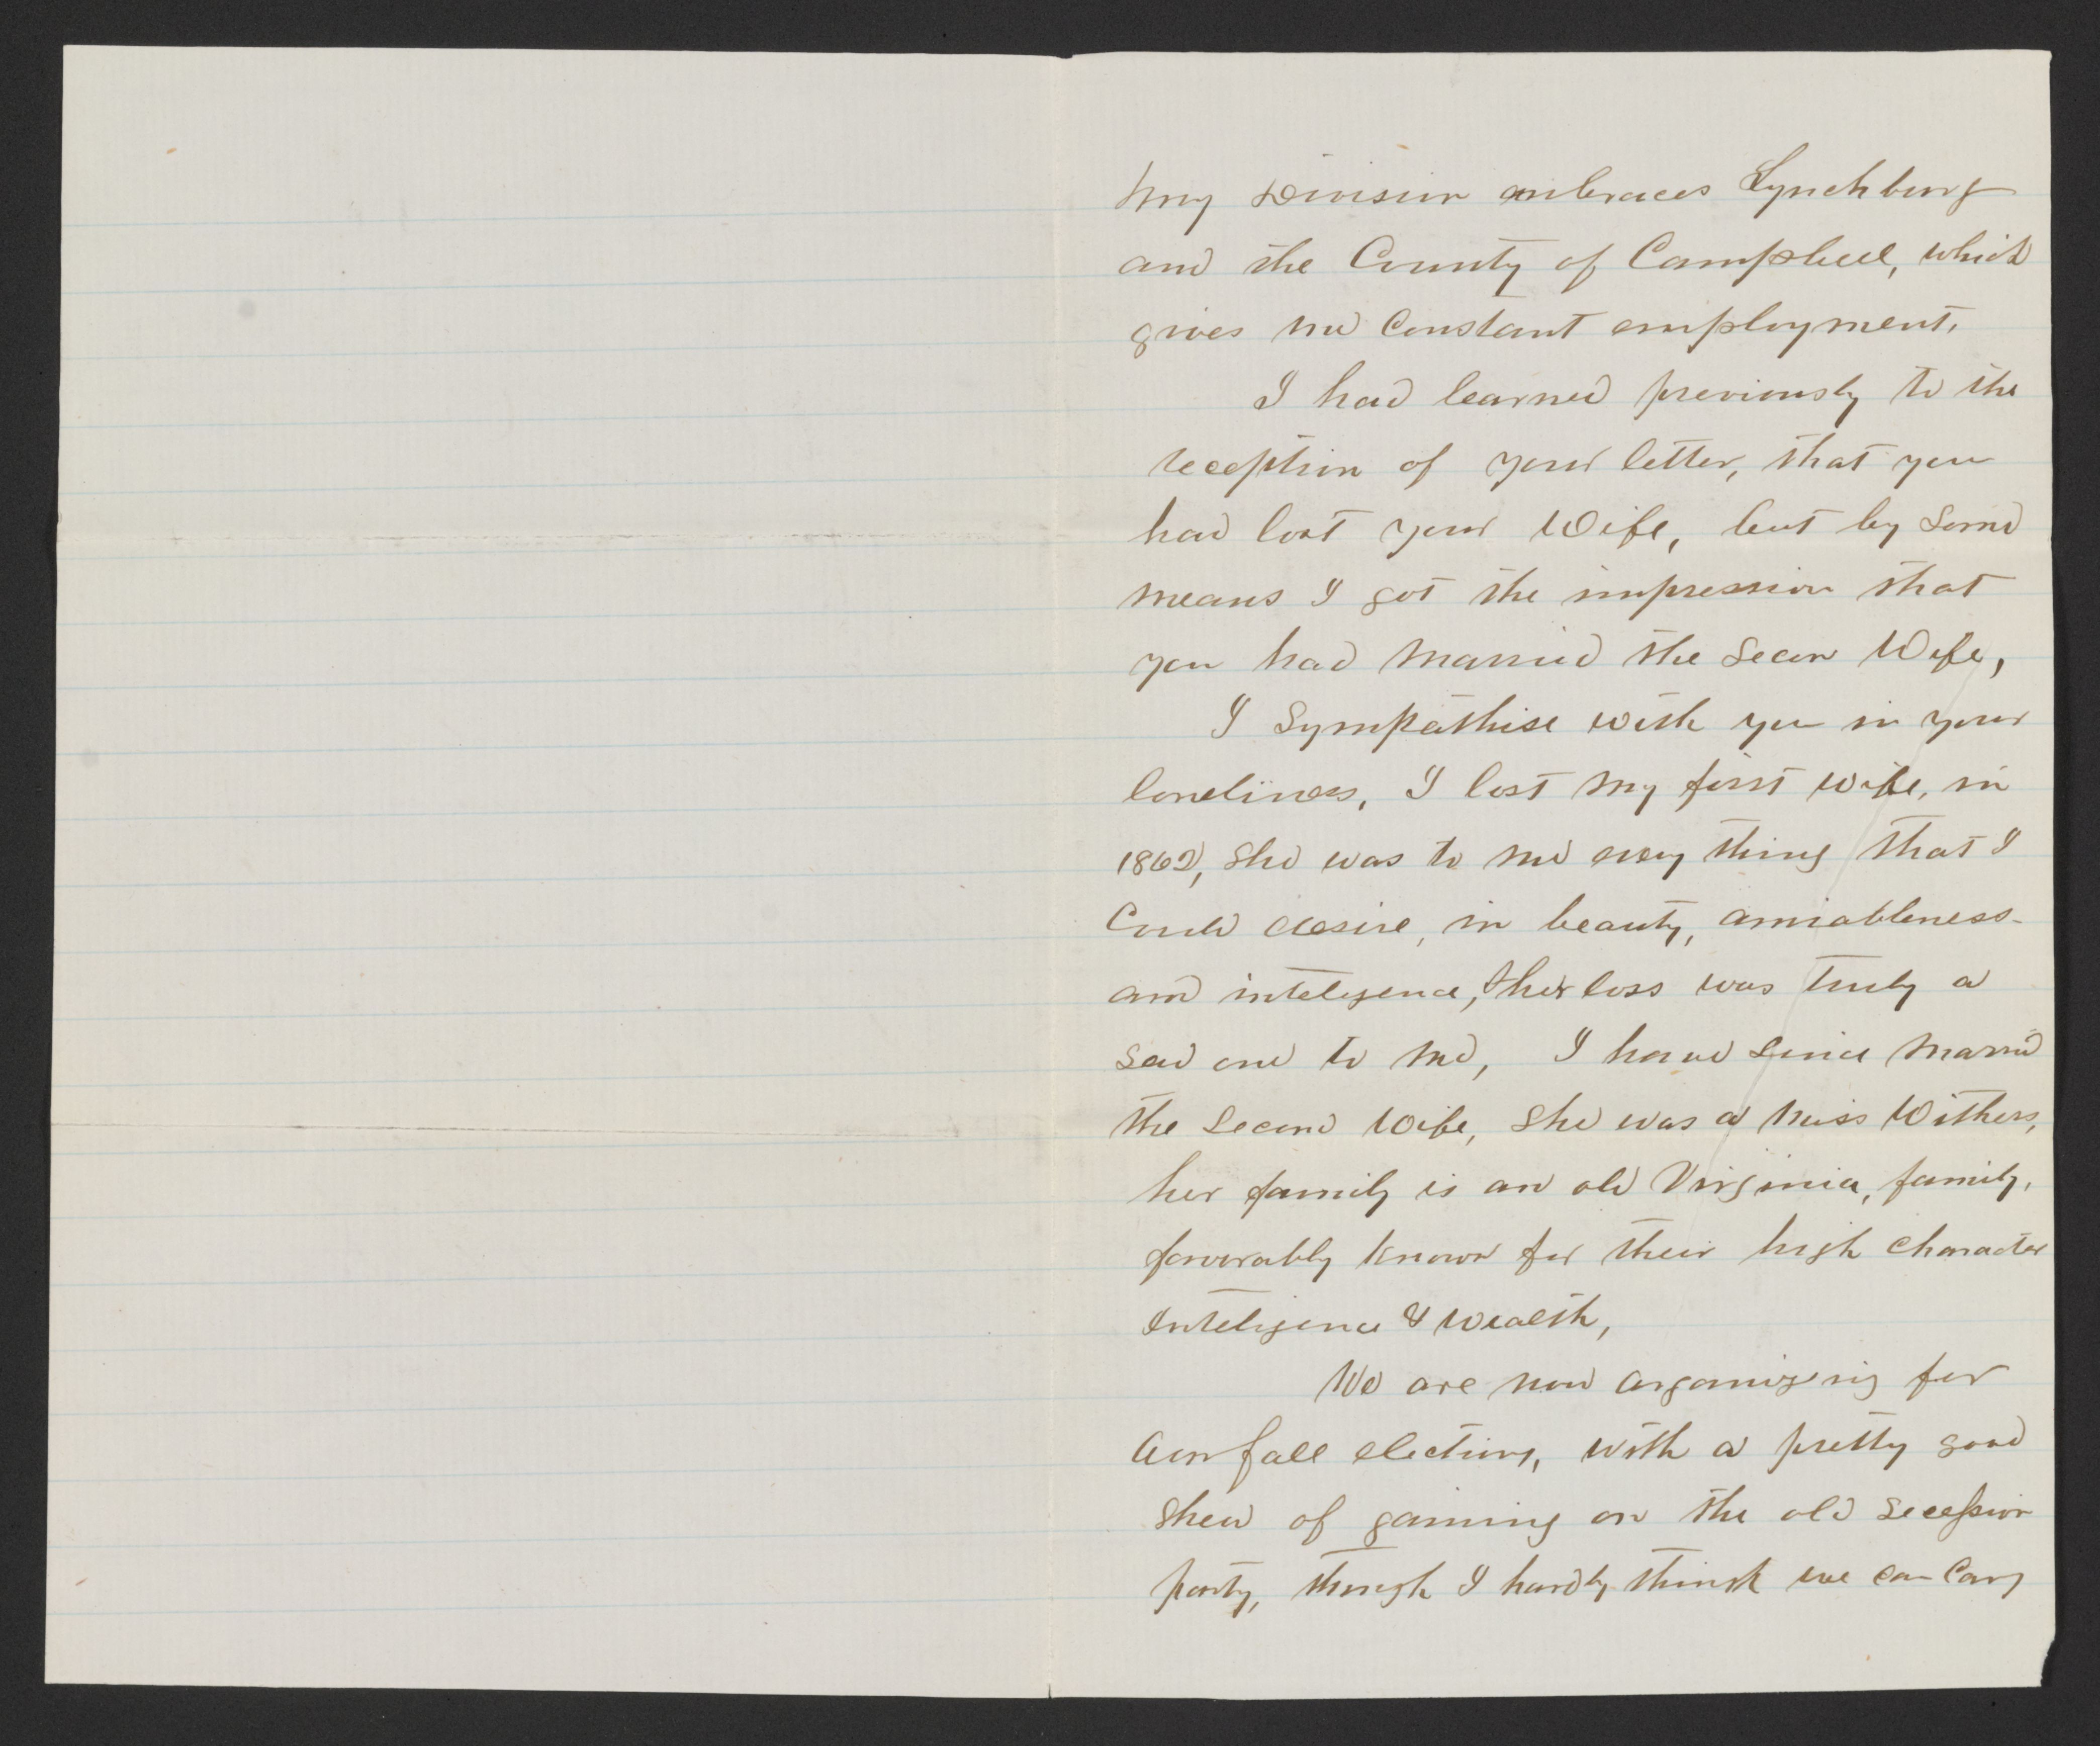 My Division embraces Lynchburg
and the County of Campbell, which
gives me Constant employment.
I had learned previously to the
reception of your letter, that you
had lost your Wife, but by some
means I got the impression that
you had married the Secon Wife,
I Sympathise with you in your
loneliness, I lost my first wife, in
1862, She was to me every thing that I
Could desire, in beauty, amiableness
and inteligence, her loss was truly a
sad one to me, I have since married
the Second Wife, She was a Miss Withers,
her family is an old Virginia, family,
favorably known for their high character
Inteligence & wealth,
We are now organizing for
our fall elections, with a pretty good
shew of gaining on the old secession
party, though I hardly think we can Cary